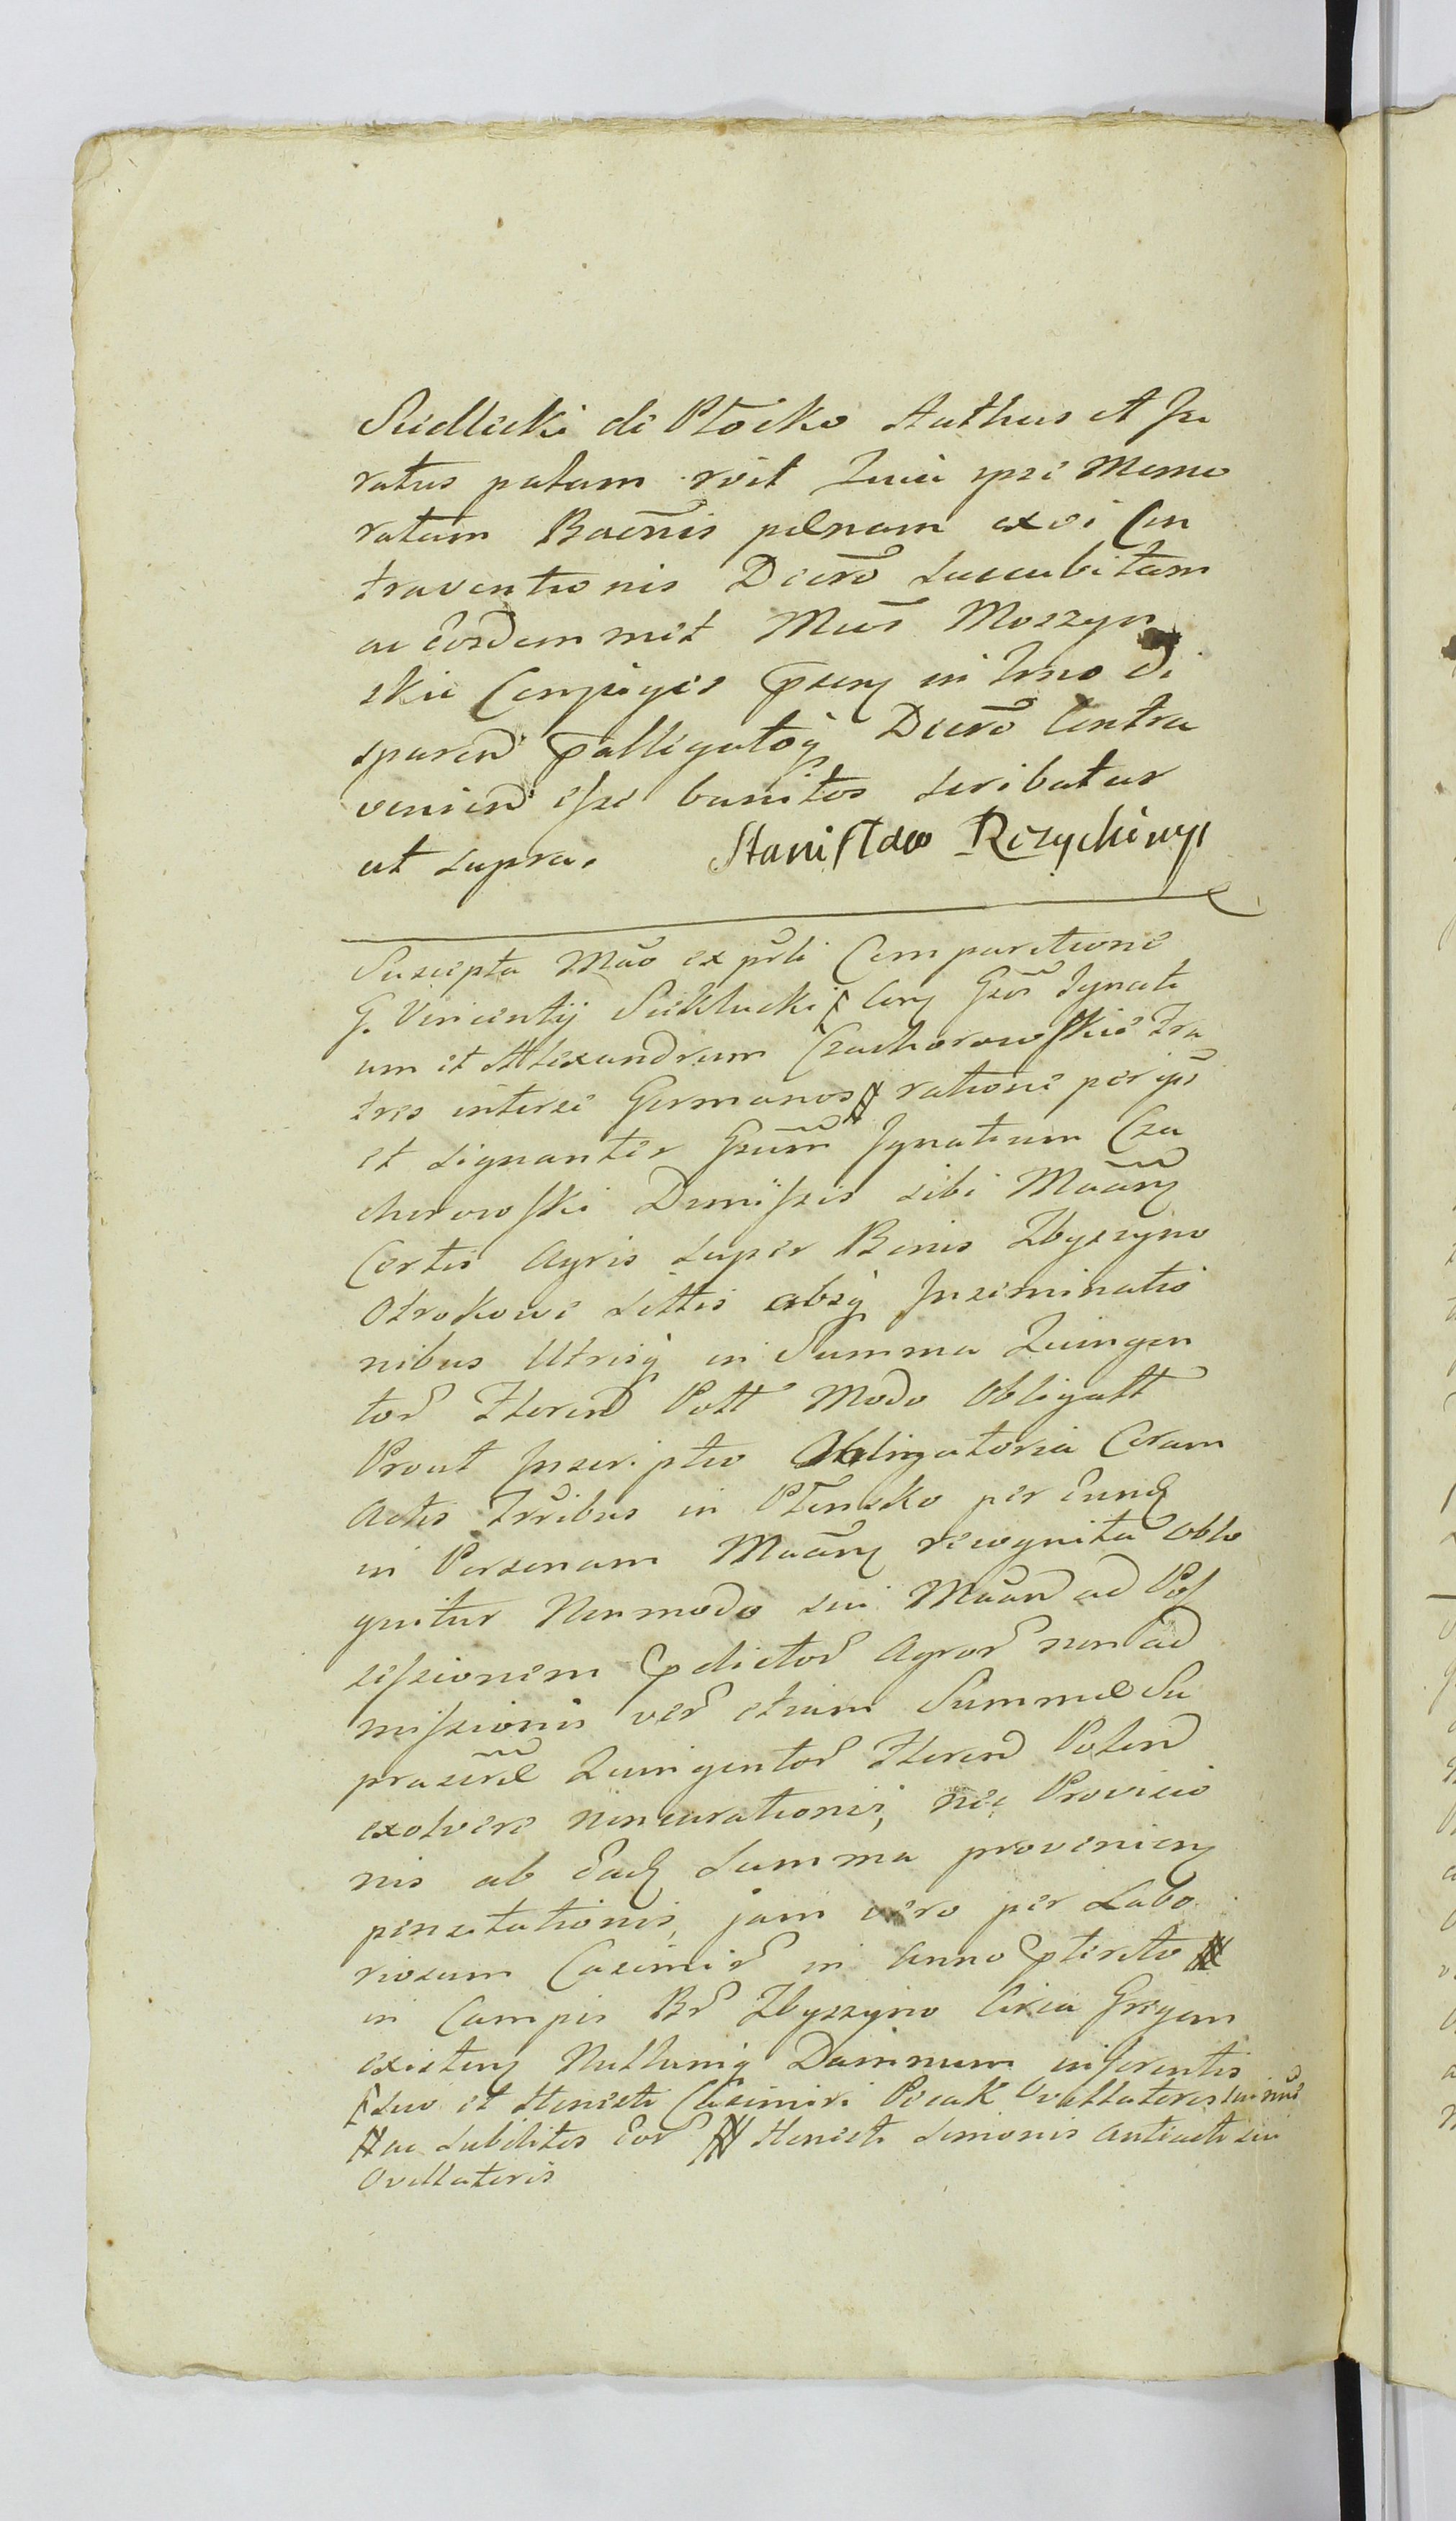 Siedlecki de Płocko Authus et Ju
ratus palam rvit Quia ipse Memo
ratam Baēnis pænam ex vi Con
traventionis Decrō succubitam
ac eosdem met Mūs Moszyn
skie Conjuges psenꝫ in Imo di
sparend palligatoq Decrō Contra
veniend esse banitos scribatur
ut supra. Stanisław Rczychiny
Suscepta Mīio ex pīsli Comparitione
G. Vincentij Siekłucki ⌈ Conꝫ Gsōs Ignati
um et Alexandrum Czachorowskie Fra
tres interse Germanos # ratione per ipōs
et signanter Gsūm Ignatium Cza
chorowski Dimissis sibi Māānꝫ
Certis Agris super Bonis Zbyszyno
Otrokowe sittis absq Inseminatio
nibus Utrisq in Summa Quingen
tor Floreno Poll Modo Obligatt
Prout Inscriptio Obligatoria Coram
Actis Trribus in Płonsko per Eundꝫ
in Personam Māānꝫ recognita oblo
quitur Nonmodo sui Māand ad Pos
sessionem pdictor Agror non ad
missionis ver etiam Summæ Su
prascrīæ Quingentor Floreno Polono
exolvere noncurationis, nec Provisio
nis ab Eadꝫ Summa provenienꝫ
pensitationis, jam vero per Labo
riosum Casimir in Anno pterito #
in Campis Br Zbyszyno Circa Gregem
existenꝫ Nullumq Damnum inferentis
⌈ suo et Honesti Casimiri Pocak Ovillatoris sui
# ac subditos Eor # Honesti Simonis Antiacti sui
Ovillatoris